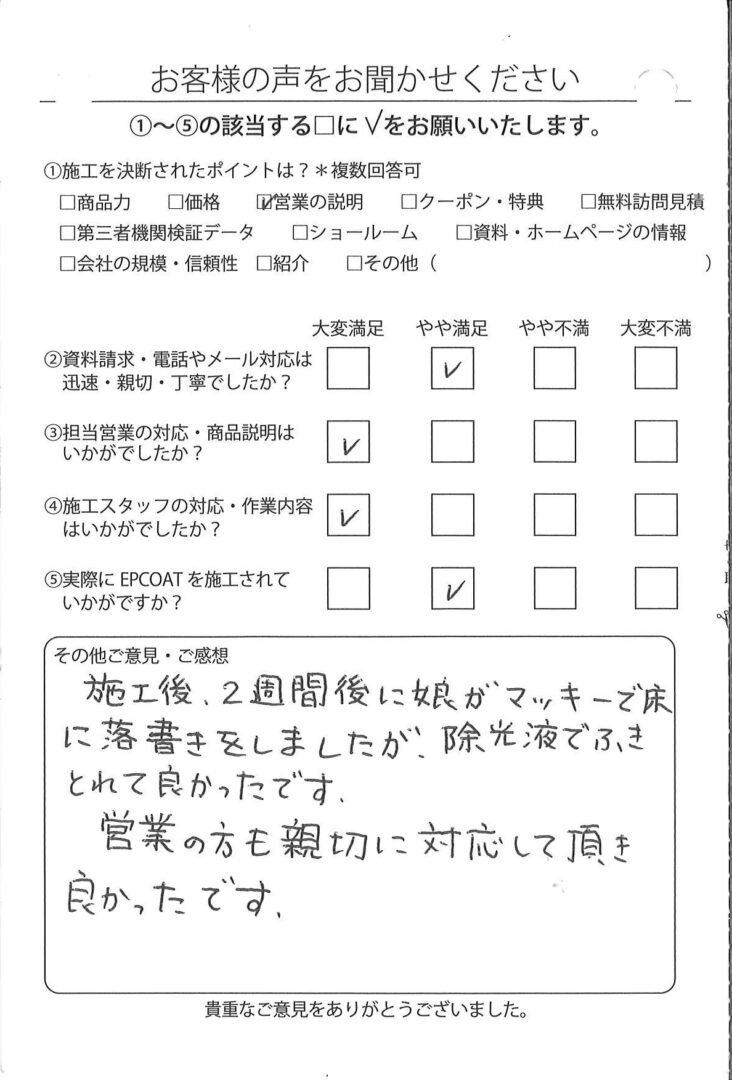 お客様の声をお聞かせください
①〜⑤の該当する□に√をお願いいたします。
①施工を決断されたポイントは？＊複数回答可
□商品力 □価格 ☑営業の説明 □クーポン・特典 □無料訪問見積
□第三者機関検証データ □ショールーム □資料・ホームページの情報
□会社の規模・信頼性 □紹介 □その他（ ）
大変満足 やや満足 やや不満 大変不満
②資料請求・電話やメール対応は
迅速・親切・丁寧でしたか？
③担当営業の対応・商品説明は
いかがでしたか？
④施工スタッフの対応・作業内容
はいかがでしたか？
⑤実際に EPCOAT を施工されて
いかがですか？
その他ご意見・ご感想
施工後、2週間後に娘がマッキーで床
に落書きをしましたが、除光液でふき
とれて良かったです.
営業の方も親切に対応して頂き
良かったです.
貴重なご意見をありがとうございました。